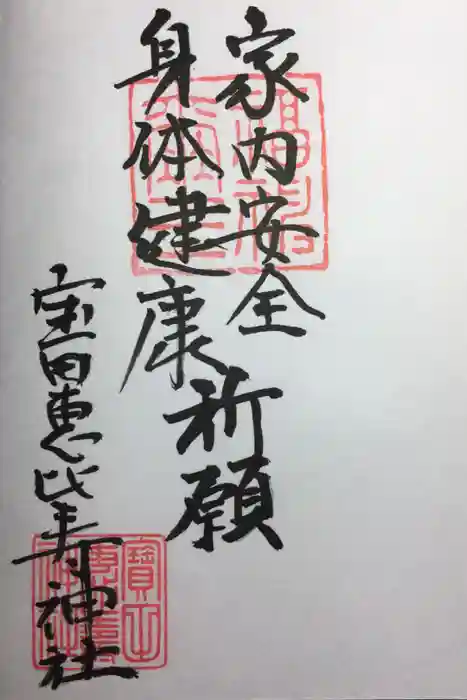 家内安全
身体健康
祈願
宝田恵比寿神社